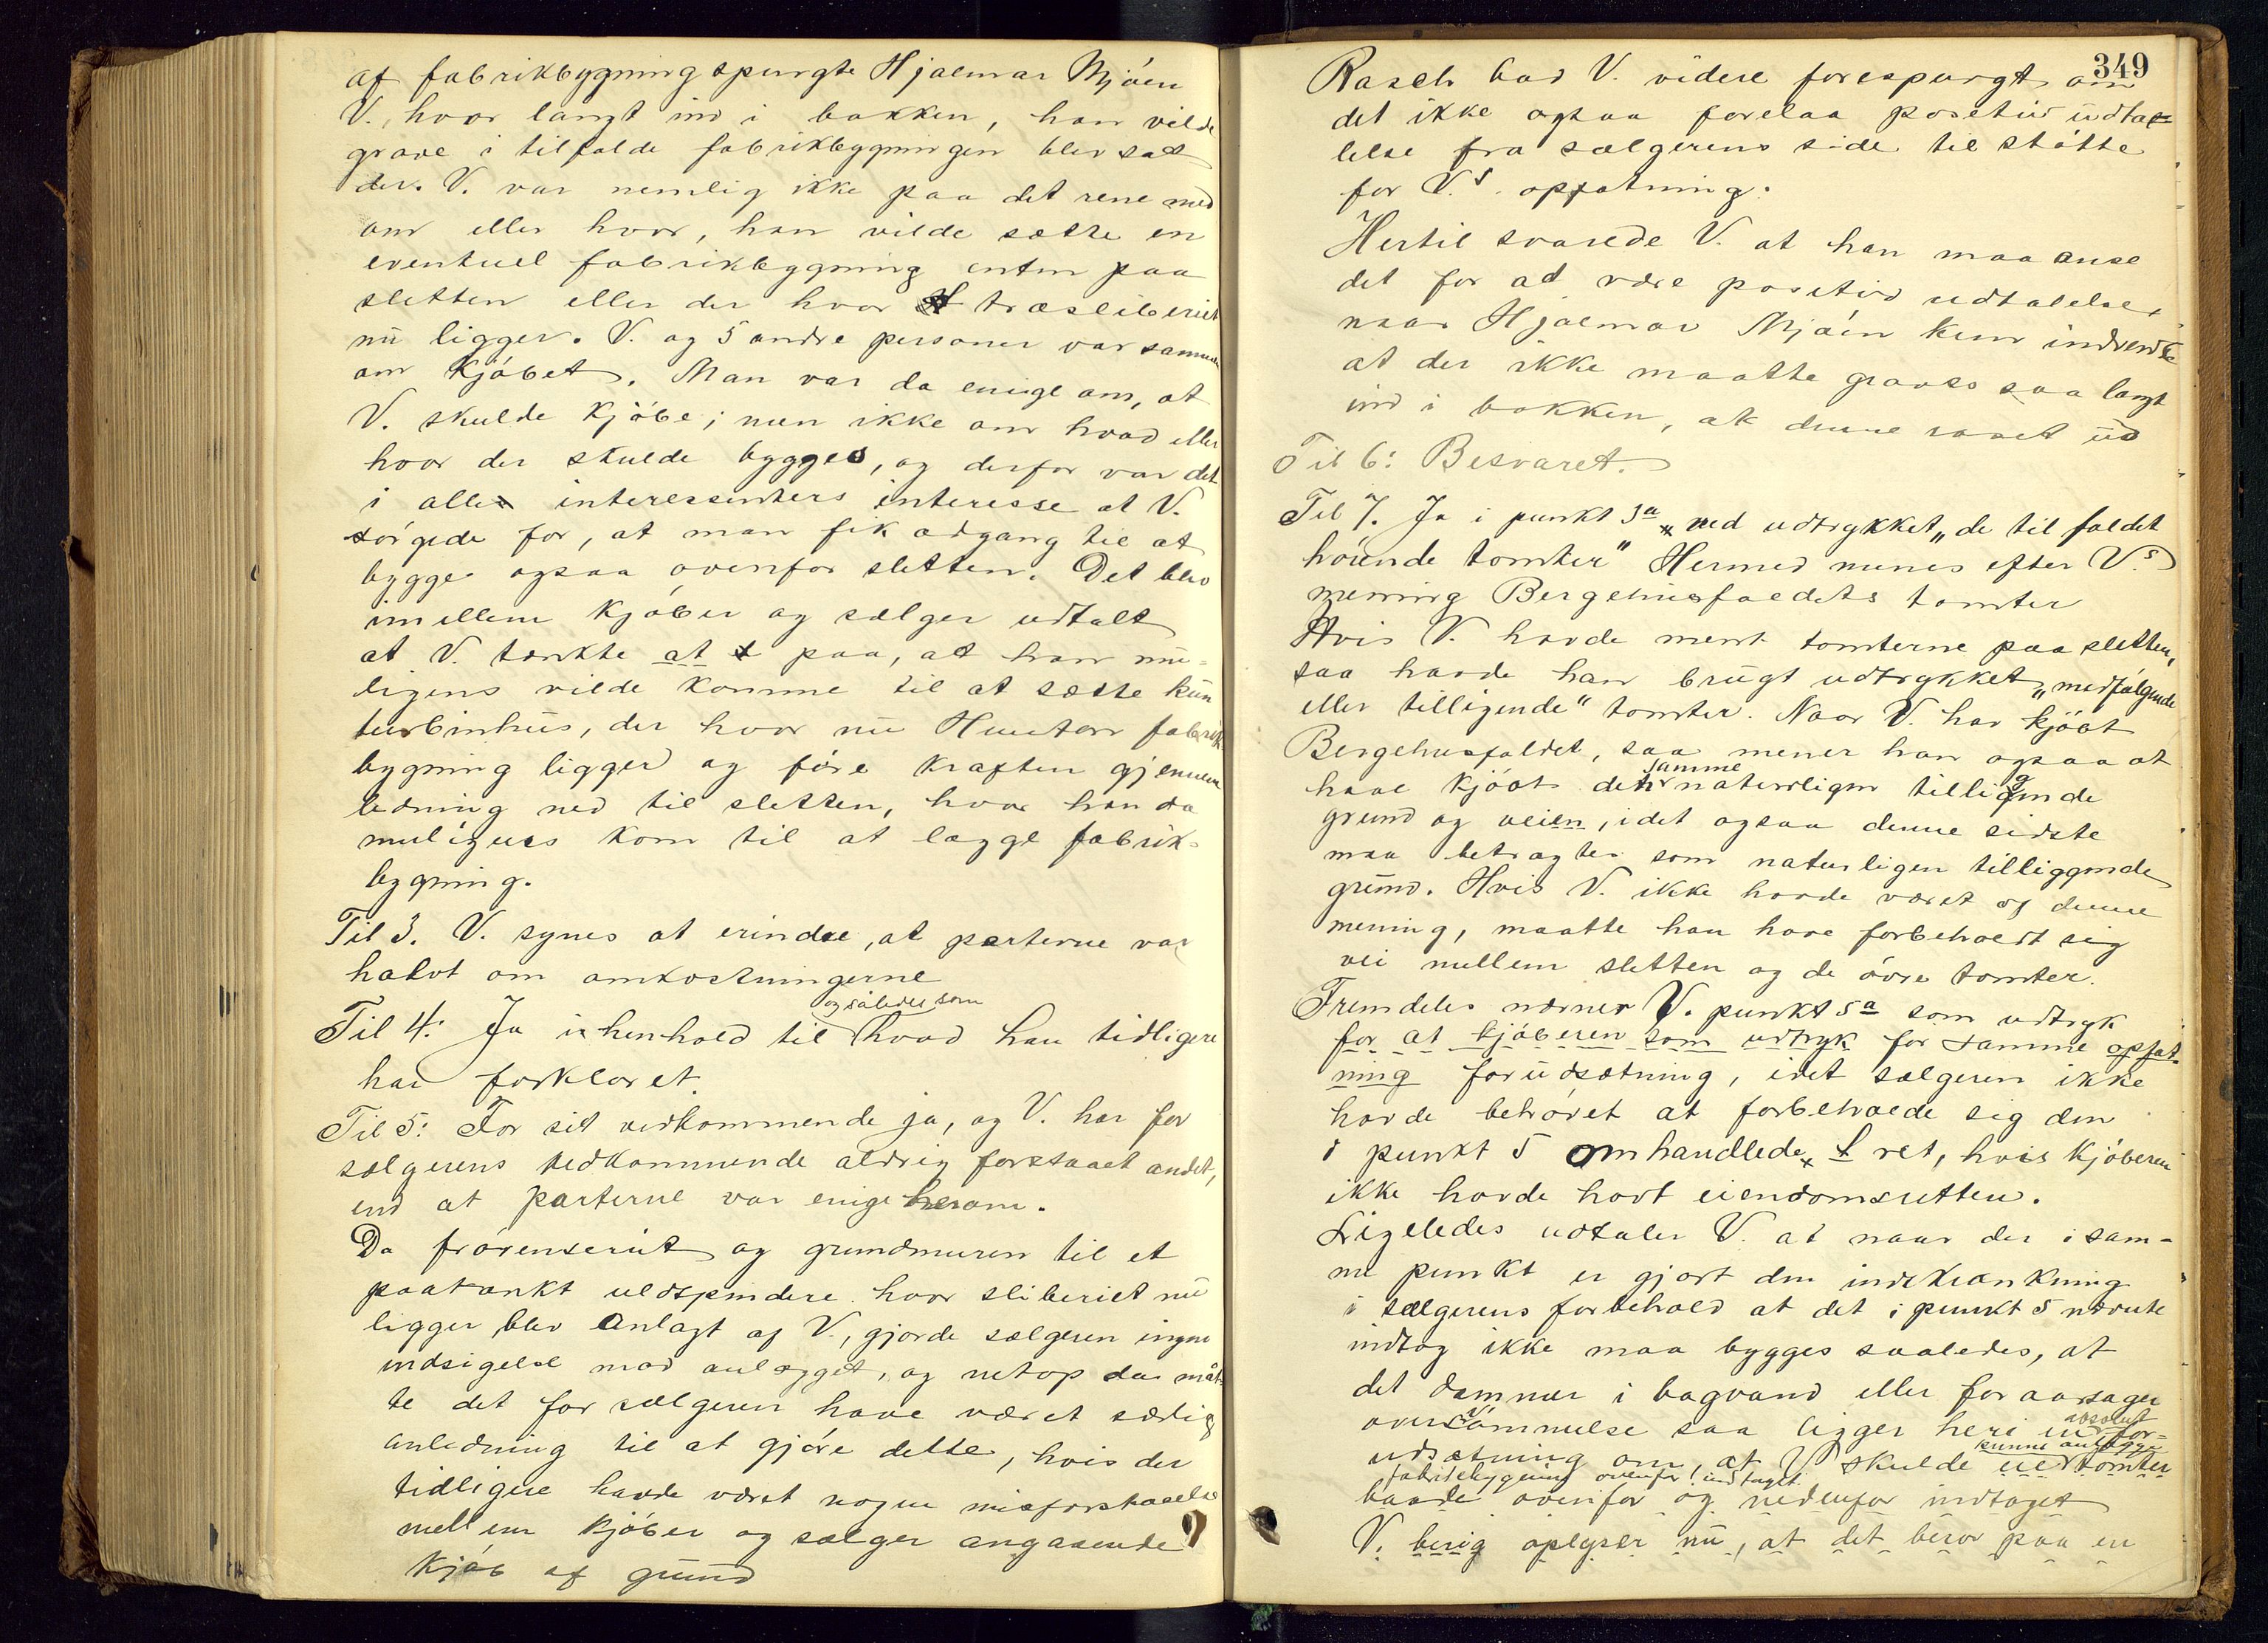 af fabrikbygning spurgte Hjalmar Mjøen
V., hvor langt ind i bakken, han vilde
grave i tilfælde fabrikbygningen blev sat
der. V. var nemlig ikke paa det rene med
om eller hvor, han vilde sætte en
eventuel fabrikbygning enten paa
sletten eller der hvor træsliberiet
nu ligger. V. og 5 andre personer var sammen
om kjøbet. Man var da enige om, at
V. skulde kjøbe; men ikke om hvad eller
hvor der skulde bygges, og derfor var det
i alle interessenters interesse at V.
sørgede for, at man fik adgang til at
bygge ogsaa ovenfor sletten. Det blev
imellem kjøber og sælger udtalt
at V. tænkte at paa, at han mu-
ligens vilde komme til at sætte kun
turbinhus, der hvor nu Hunton fabrik
bygning ligger og føre kraften gjennem
ledning ned til sletten, hvor han da
muligens kom til at lægge fabrik-
bygning.
Til 3. V. synes at erindre, at parterne var
halvt om omkostningerne
og således som
Til 4: Ja i henhold til hvad han tidligere
har forklaret
Til 5: For sit vedkommende ja, og V. har for
sælgerens vedkommende aldrig forstaaet andet,
end at parterne var enige herom.
Da frørenseriet og grundmuren til et
paatænkt uldspinderi hvor sliberiet nu
ligger blev anlagt af V., gjorde sælgeren ingen
indsigelse mod anlægget, og netop da måt-
te det for sælgeren have været særlig
anledning til at gjøre dette, hvis der
tidligere havde været nogen misforstaaelse
mellem kjøber og sælger angaaende
kjøb af grund
349
Rasch bad V. videre forespurgt om
det ikke ogsaa forelaa posetiv udta-
lelse fra sælgerens side til støtte
for V.s opfatning.
Hertil svarede V. at han maa anse
det for at være positiv udtalelse,
naar Hjalmar Mjøen kun indvendte
at der ikke maatte graves saa langt
ind i bakken, at denne raset ud
Til 6: Besvaret.
Til 7. Ja i punkt 3a ved udtrykket "de til faldet
hørende tomter" Hermed menes efter V.s
mening Bergehusfaldets tomter
Hvis V. havde ment tomterne paa sletten,
saa havde han brugt udtrykket "medfølgende
eller tilligende" tomter. Naar V. har kjøbt
Bergehusfaldet, saa mener han ogsaa at
samme
have kjøbt den naturligen tilligende
grund og veien, idet ogsaa denne sidste
maa betragtes som naturligen tilliggende
grund. Hvis V. ikke havde været af denne
mening, maatte han have forbeholdt sig
vei mellem sletten og de øvre tomter.
Fremdeles nævner V. punkt 5a som udtryk
for at kjøberen som udtryk for samme opfat-
ning forudsætning, idet sælgeren ikke
havde behøvet at forbeholde sig den
i punkt 5 omhandlede ret, hvis kjøberen
ikke havde havt eiendomsretten.
Ligeledes udtaler V. at naar der i sam-
me punkt er gjort den indskrænkning
i sælgerens forbehold at det i punkt 5 nævnte
indtag ikke maa bygges saaledes, at
det dæmmer i bagvand eller foraarsager
oversvømmelse saa ligger heri en for-
absolut
udsætning om, at V. skulde eie tomter
kunne anlægge
fabrikbygning ovenfor indtaget
baade ovenfor og nedenfor indtaget
V. berig oplyser nu, at det beror paa en